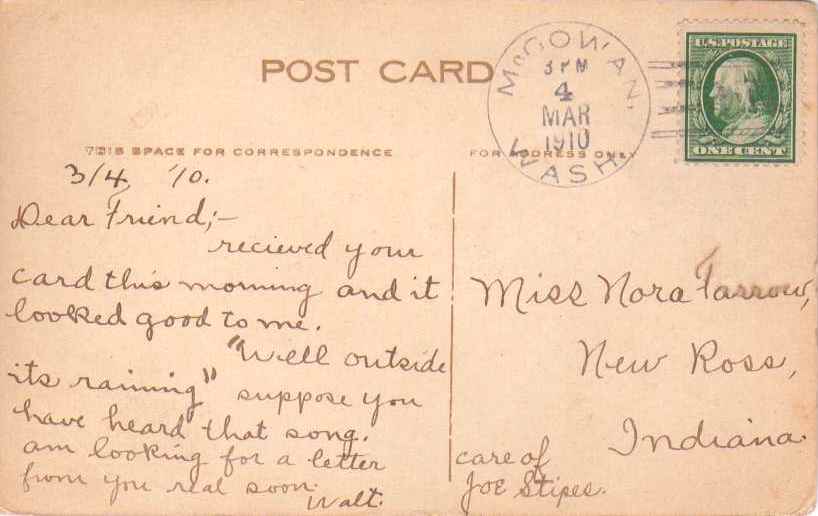 POST CARD
McGOWAN,
3 PM
4
MAR
1910
WASH.
U.S. POSTAGE
ONE CENT
THIS SPACE FOR CORRESPONDENCE
FOR ADDRESS ONLY
3/4, '10.
Dear Friend;—
recieved your
card this morning and it
looked good to me.
"Well outside
its raining" suppose you
have heard that song.
am looking for a letter
from you real soon.
Walt.
Miss Nora Farrow,
New Ross,
Indiana.
care of
JOE Stipes.